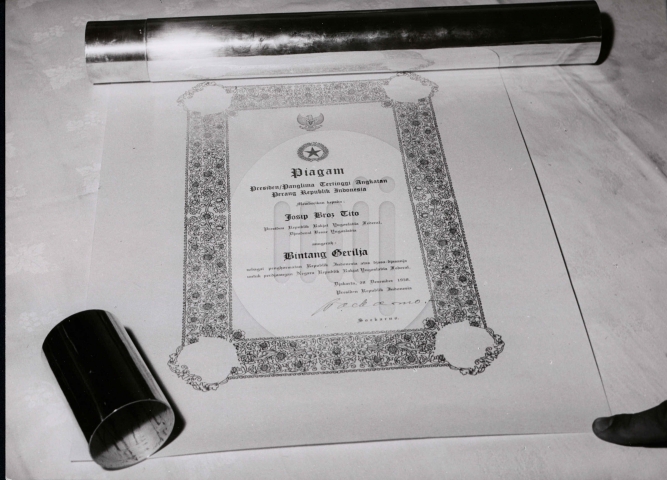 Piagam
Presiden/Panglima Tertinggi Angkatan
Perang Republik Indonesia
Memberikan kepada:
Josip Broz Tito
Presiden Republik Rakjat Yugoslavia Federal,
Yugoslavia
Bintang Gerilja
sebagai penghormatan Republik Indonesia atas
untuk perdjuangan Negara Republik Rakjat Yugoslavia Federal.
Djakarta, 28 Desember 1958.
Presiden Republik Indonesia
Soekarno.